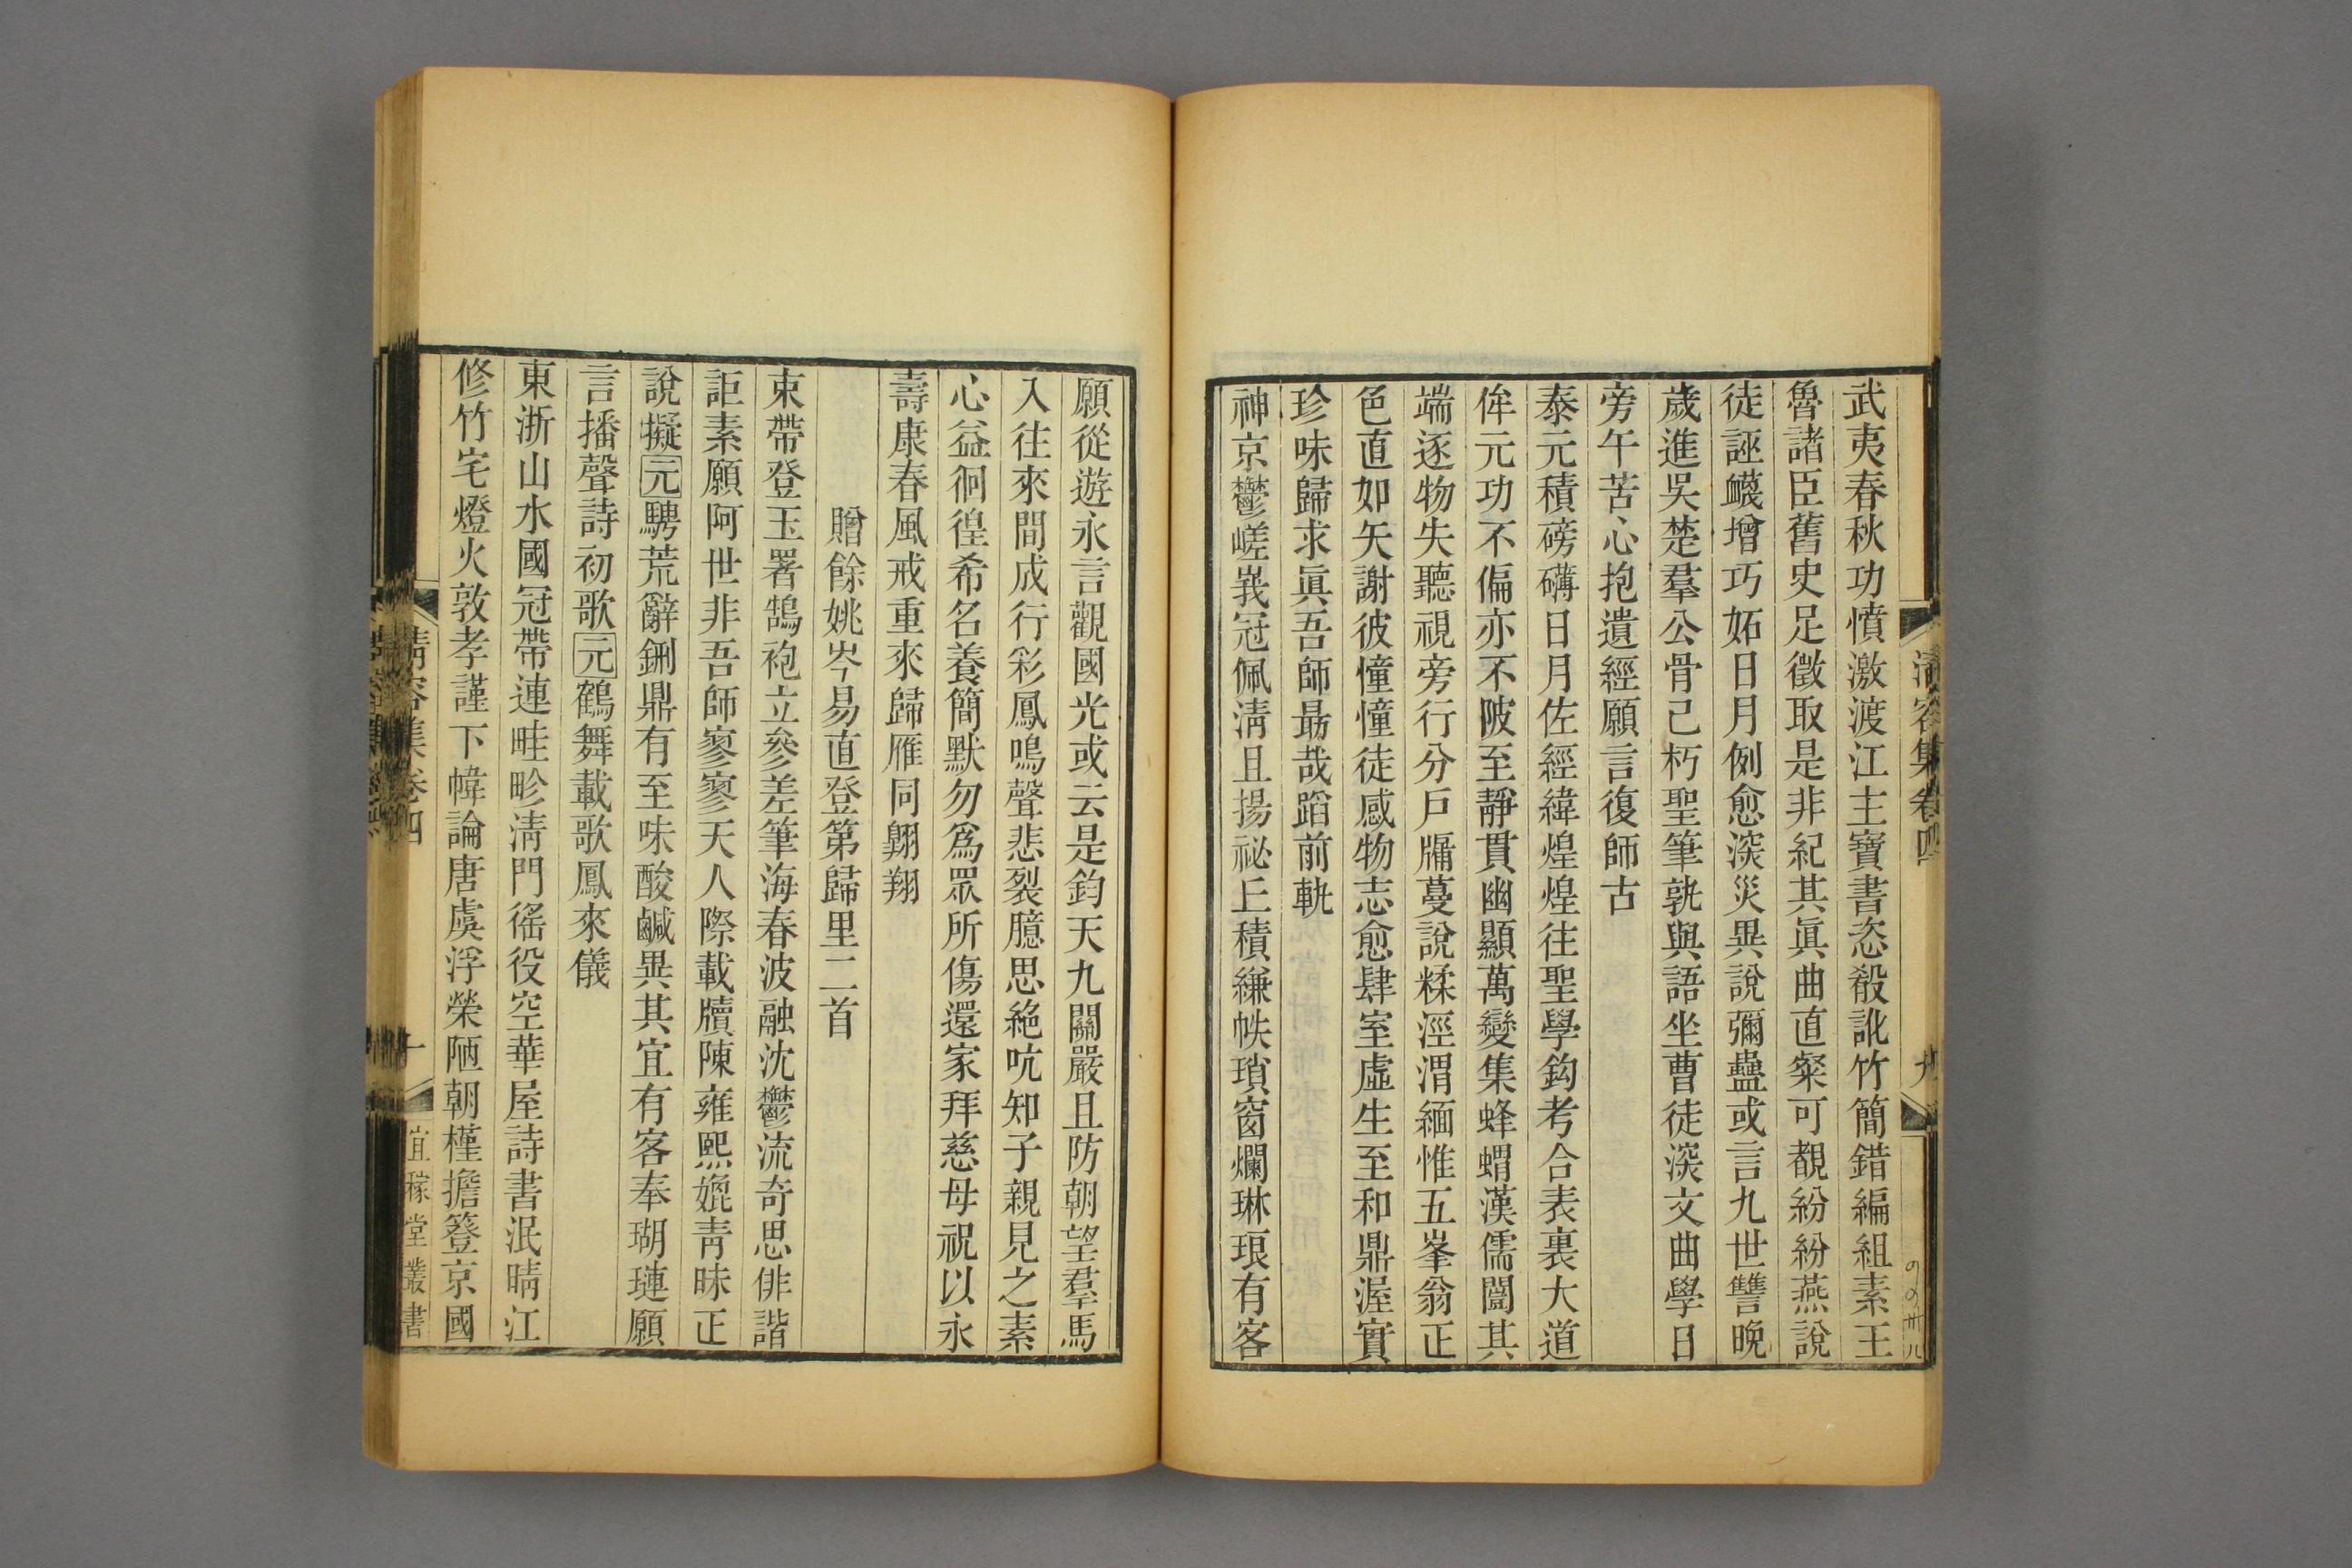 武夷春秋功憤激渡江主寶書恣殺訛竹簡錯編組素王
魯諸臣舊史足徵取是非紀其眞曲直粲可覩紛紛燕說
徒誣衊增巧妬日月例愈深災異說彌蠱或言九世讐晚
歲進吳楚羣公骨已朽聖筆孰與語坐曹徒深文曲學日
旁午苦心抱遺經願言復師古
泰元積磅礴日月佐經緯煌煌往聖學鈎考合表裏大道
侔元功不偏亦不陂至靜貫幽顯萬變集蜂蝟漢儒闓其
端逐物失聽視旁行分戶牖蔓說糅涇渭緬惟五峯翁正
色直如矢謝彼憧憧徒感物志愈肆室虛生至和鼎渥實
珍味歸求眞吾師勗哉蹈前軌
神京鬱嵯峩冠佩淸且揚祕丘積縑帙瑣窗爛琳琅有客
清容集卷四
九
願從遊永言觀國光或云是鈞天九關嚴且防朝望羣馬
入往來間成行彩鳳鳴聲悲裂臆思絶吭知子親見之素
心益徊徨希名養簡默勿爲眾所傷還家拜慈母祝以永
壽康春風戒重來歸雁同翺翔
贈餘姚岑易直登第歸里二首
束帶登玉署鵠袍立參差筆海春波融沈鬱流奇思俳諧
詎素願阿世非吾師寥寥天人際載牘陳雍熙媲靑昧正
說擬元騁荒辭鉶鼎有至味酸鹹異其宜有客奉瑚璉願
言播聲詩初歌元鶴舞載歌鳳來儀
東浙山水國冠帶連畦畛淸門徭役空華屋詩書泯晴江
修竹宅燈火敦孝謹下幃論唐虞浮榮陋朝槿擔簦京國
清容集卷四
十
宜稼堂叢書